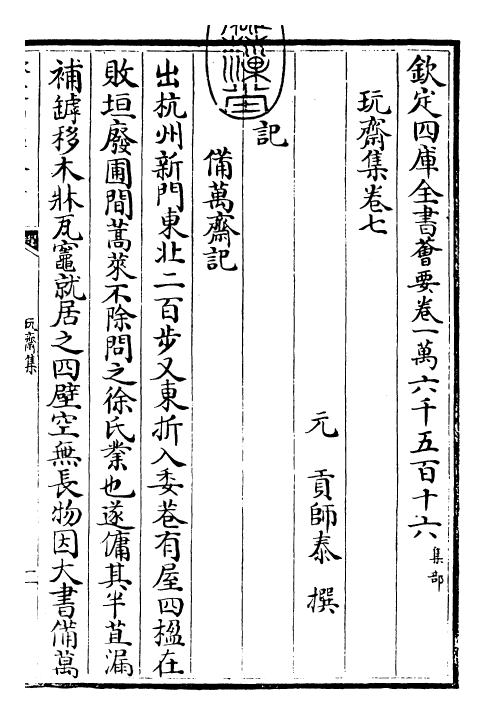 欽定四庫全書薈要卷一萬六千五百十六集部
玩齋集卷七
元 貢師泰 撰
記
備萬齋記
出杭州新門東北二百步又東折入委巷有屋四楹在
敗垣廢圃間蒿萊不除問之徐氏業也遂傭其半苴漏
補罅移木牀瓦竈就居之四壁空無長物因大書備萬
玩齋集